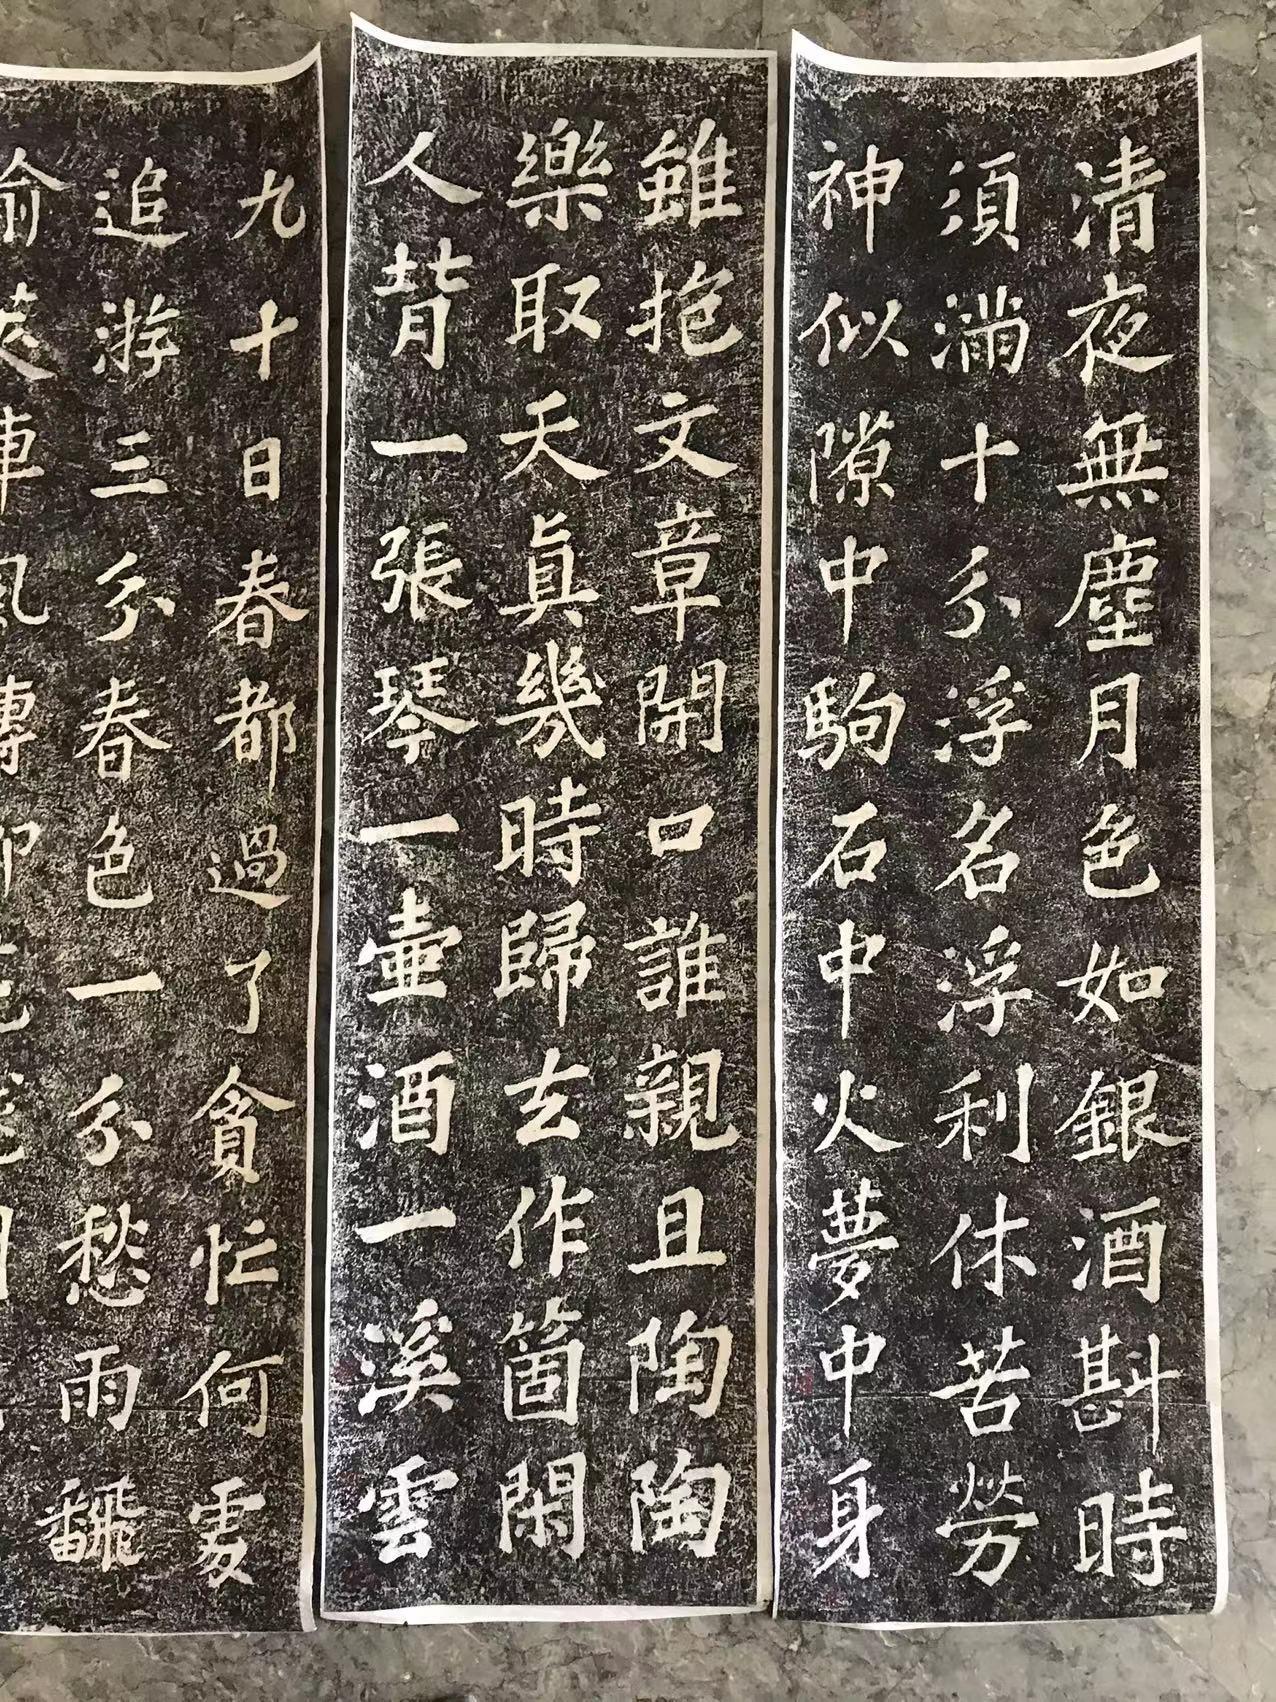 清夜無塵月色如銀酒斟時
須滿十分浮名浮利休苦勞
神似隙中駒石中火夢中身
雖抱文章開口誰親且陶陶
樂取天眞幾時歸去作箇閑
人背一張琴一壷酒一溪雲
九十日春都過了貪忙何處
追游三分春色一分愁雨飜